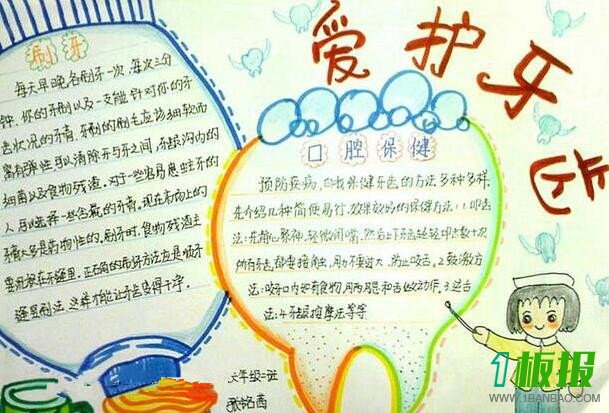 爱护牙齿
刷牙
每天早晚各刷牙一次,每次三分
钟。你的牙刷以及一支能针对你的牙
齿状况的牙膏。牙刷的刷毛应该细软而
富有弹性可以清除牙与牙之间、牙龈沟内的
细菌以及食物残渣。对于一些容易患蛀牙的
人可以选择一些含氟的牙膏。现在市场上的
牙膏大多是药物性的。刷牙时,食物残渣主
要积存在牙缝里。正确的刷牙方法应是顺牙
缝里刷法,这样才能让牙齿变得干净。
口腔保健
预防疾病,自我保健牙齿的方法多种多样。
先介绍几种简便易行、效果较好的保健方法:1.叩齿
法:先静心聚神,轻微闭嘴,然后上下牙齿轻轻叩击数十次
所有牙齿都要接触,用力不要过大,防止咬舌。2.鼓漱方
法:咬牙口内如有食物,用两腮和舌做动作。3.运舌
法:4.牙龈按摩法等等
六年级一班
1板报
WWW.1BANBAO.COM